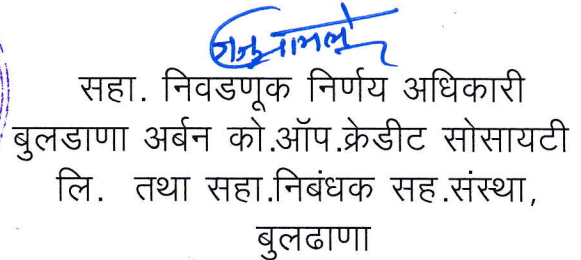 सहा. निवडणूक निर्णय अधिकारी
बुलडाणा अर्बन को.ऑप.क्रेडीट सोसायटी
लि. तथा सहा.निबंधक सह.संस्था,
बुलढाणा